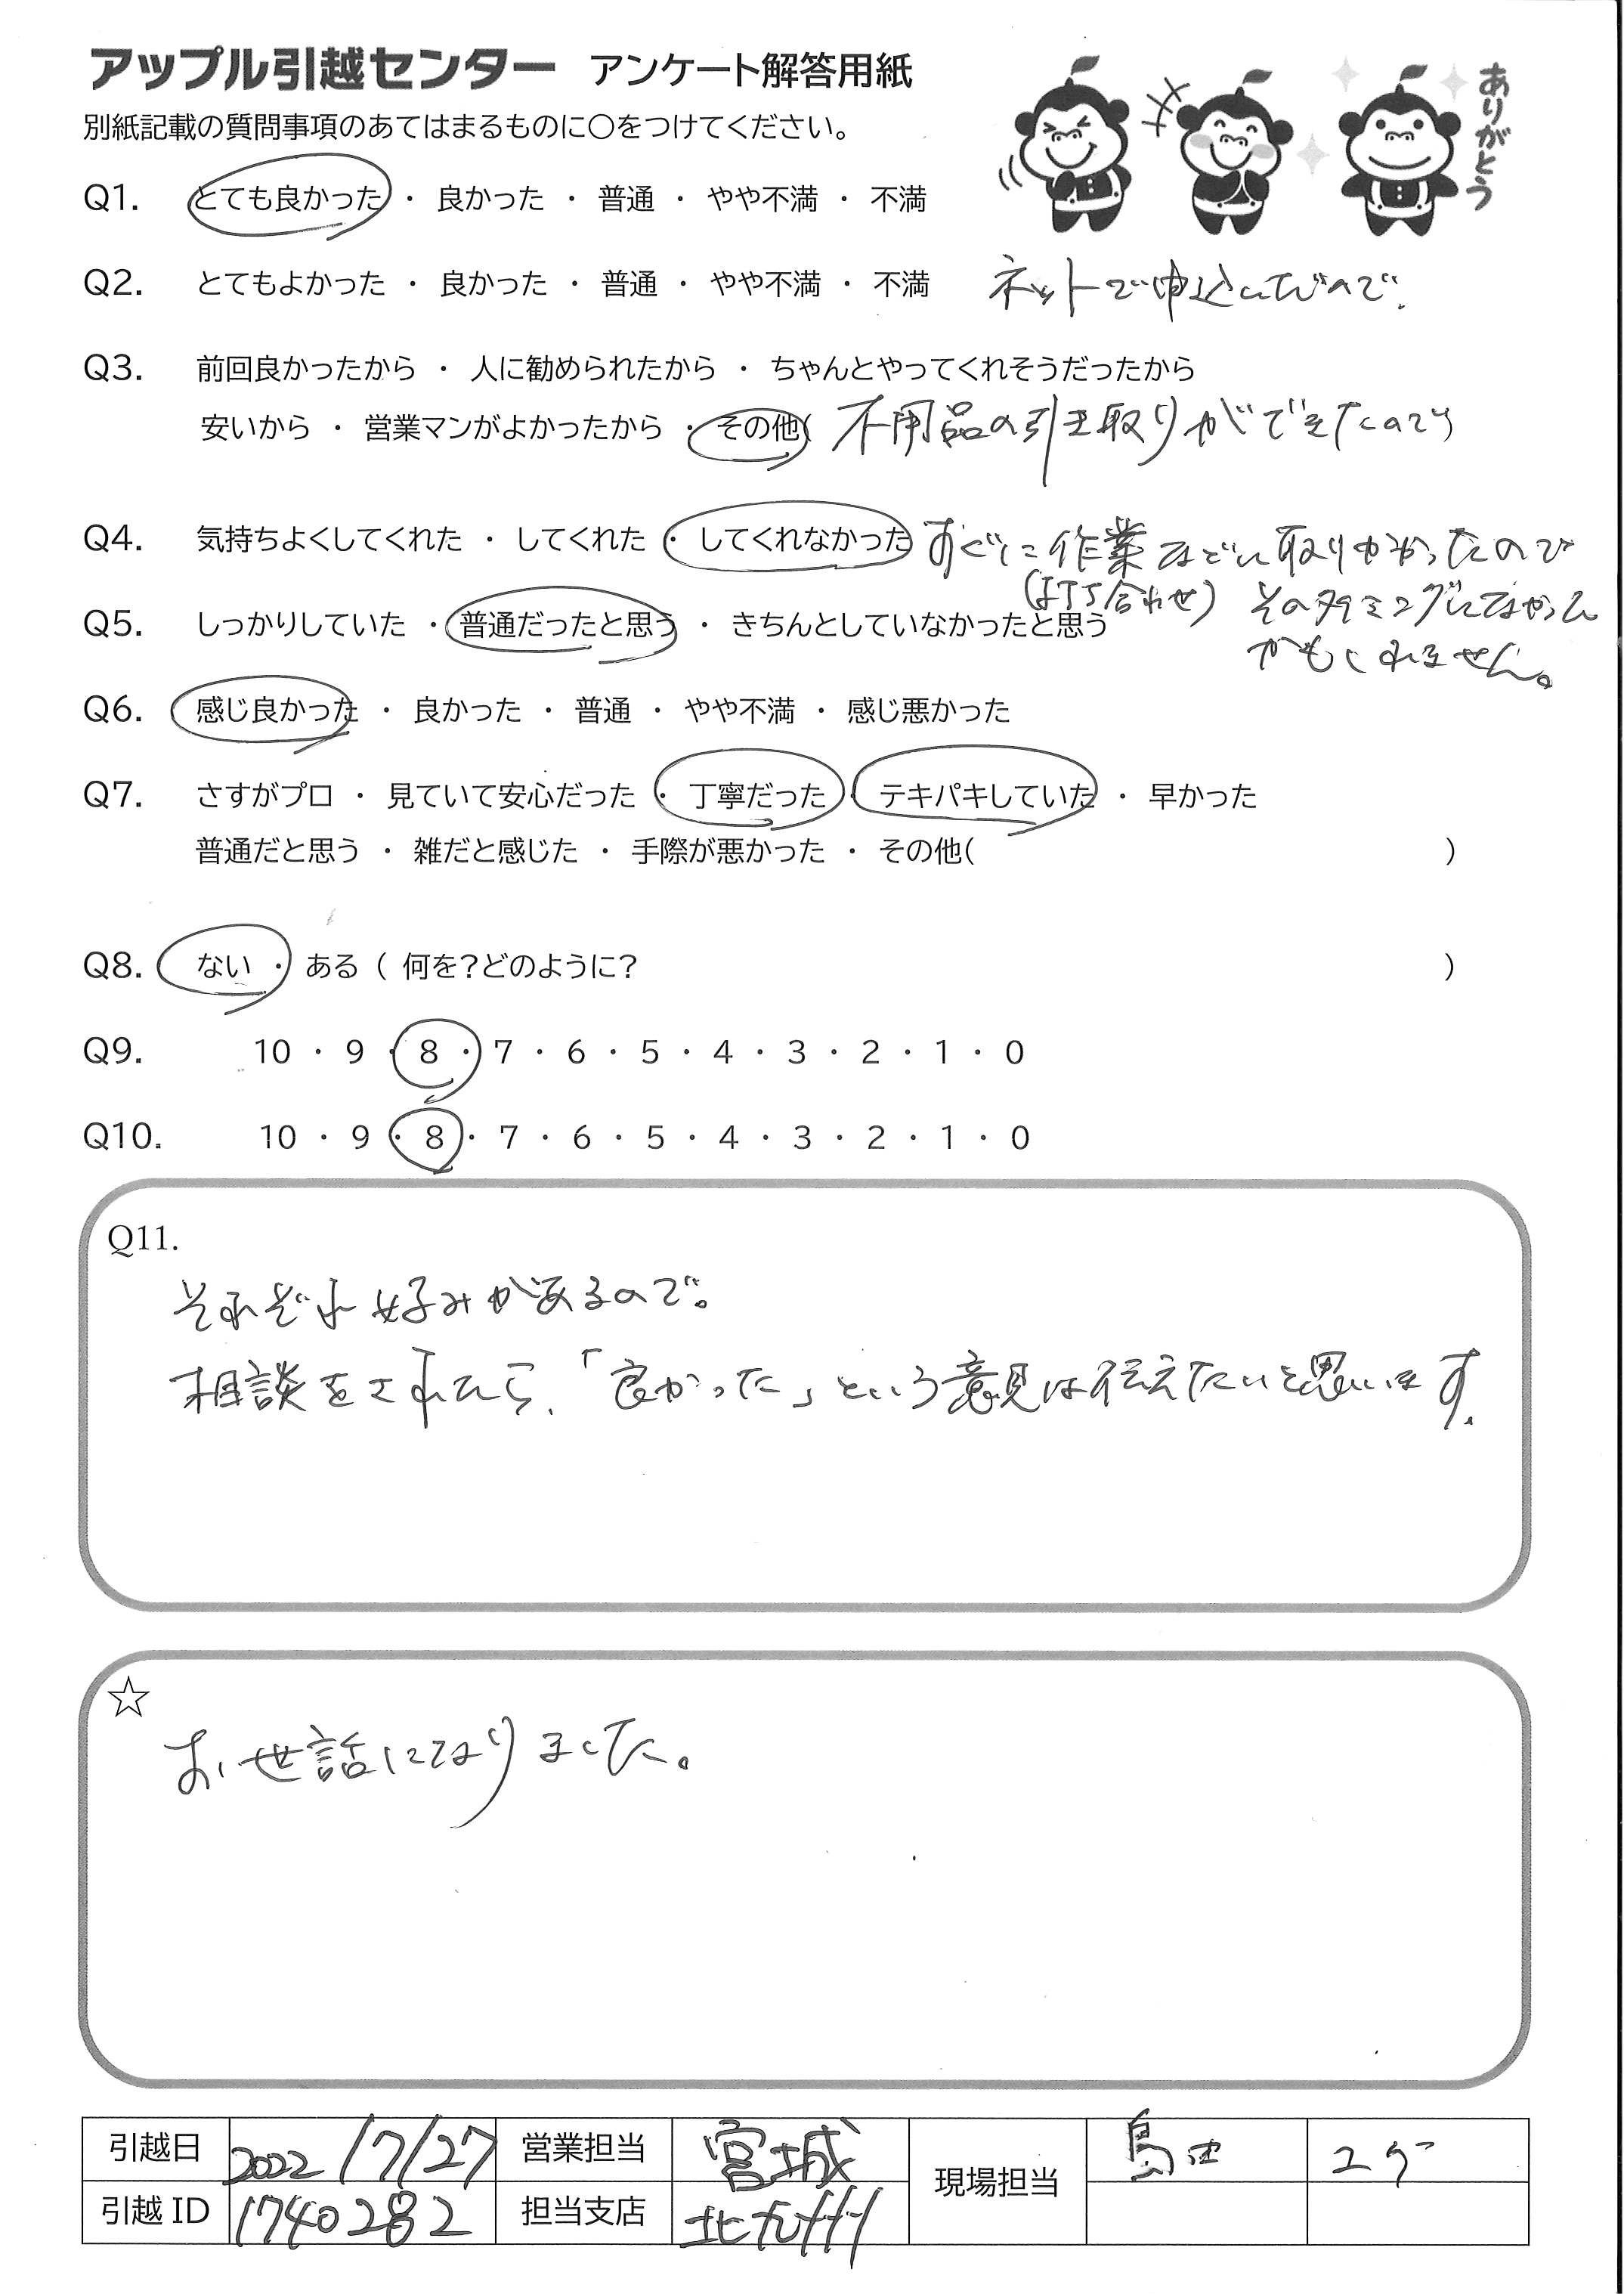 アップル引越センター アンケート解答用紙
ありがとう
別紙記載の質問事項のあてはまるものに○をつけてください。
Q1. とても良かった ・ 良かった ・ 普通 ・ やや不満 ・ 不満
Q2. とてもよかった ・ 良かった ・ 普通 ・ やや不満 ・ 不満 ネットで申込んだので.
Q3. 前回良かったから ・ 人に勧められたから ・ ちゃんとやってくれそうだったから
安いから ・ 営業マンがよかったから ・ その他( 不用品の引き取りができたので)
Q4. 気持ちよくしてくれた ・ してくれた ・ してくれなかった すぐに作業 取りかかったので
(打ち合わせ) そのタイミングになかった
Q5. しっかりしていた ・ 普通だったと思う ・ きちんとしていなかったと思う
かもしれません。
Q6. 感じ良かった ・ 良かった ・ 普通 ・ やや不満 ・ 感じ悪かった
Q7. さすがプロ ・ 見ていて安心だった ・ 丁寧だった ・ テキパキしていた ・ 早かった
普通だと思う ・ 雑だと感じた ・ 手際が悪かった ・ その他( )
Q8. ない ・ ある ( 何を?どのように? )
Q9. 10 ・ 9 ・ 8 ・ 7 ・ 6 ・ 5 ・ 4 ・ 3 ・ 2 ・ 1 ・ 0
Q10. 10 ・ 9 ・ 8 ・ 7 ・ 6 ・ 5 ・ 4 ・ 3 ・ 2 ・ 1 ・ 0
Q11.
それぞれ好みがあるので。
相談をされたら、「良かった」という意見は伝えたいと思います.
☆
お世話になりました。
引越日 2022/7/27 営業担当 宮城 現場担当 島田 ユゲ
引越ID 1740282 担当支店 北九州